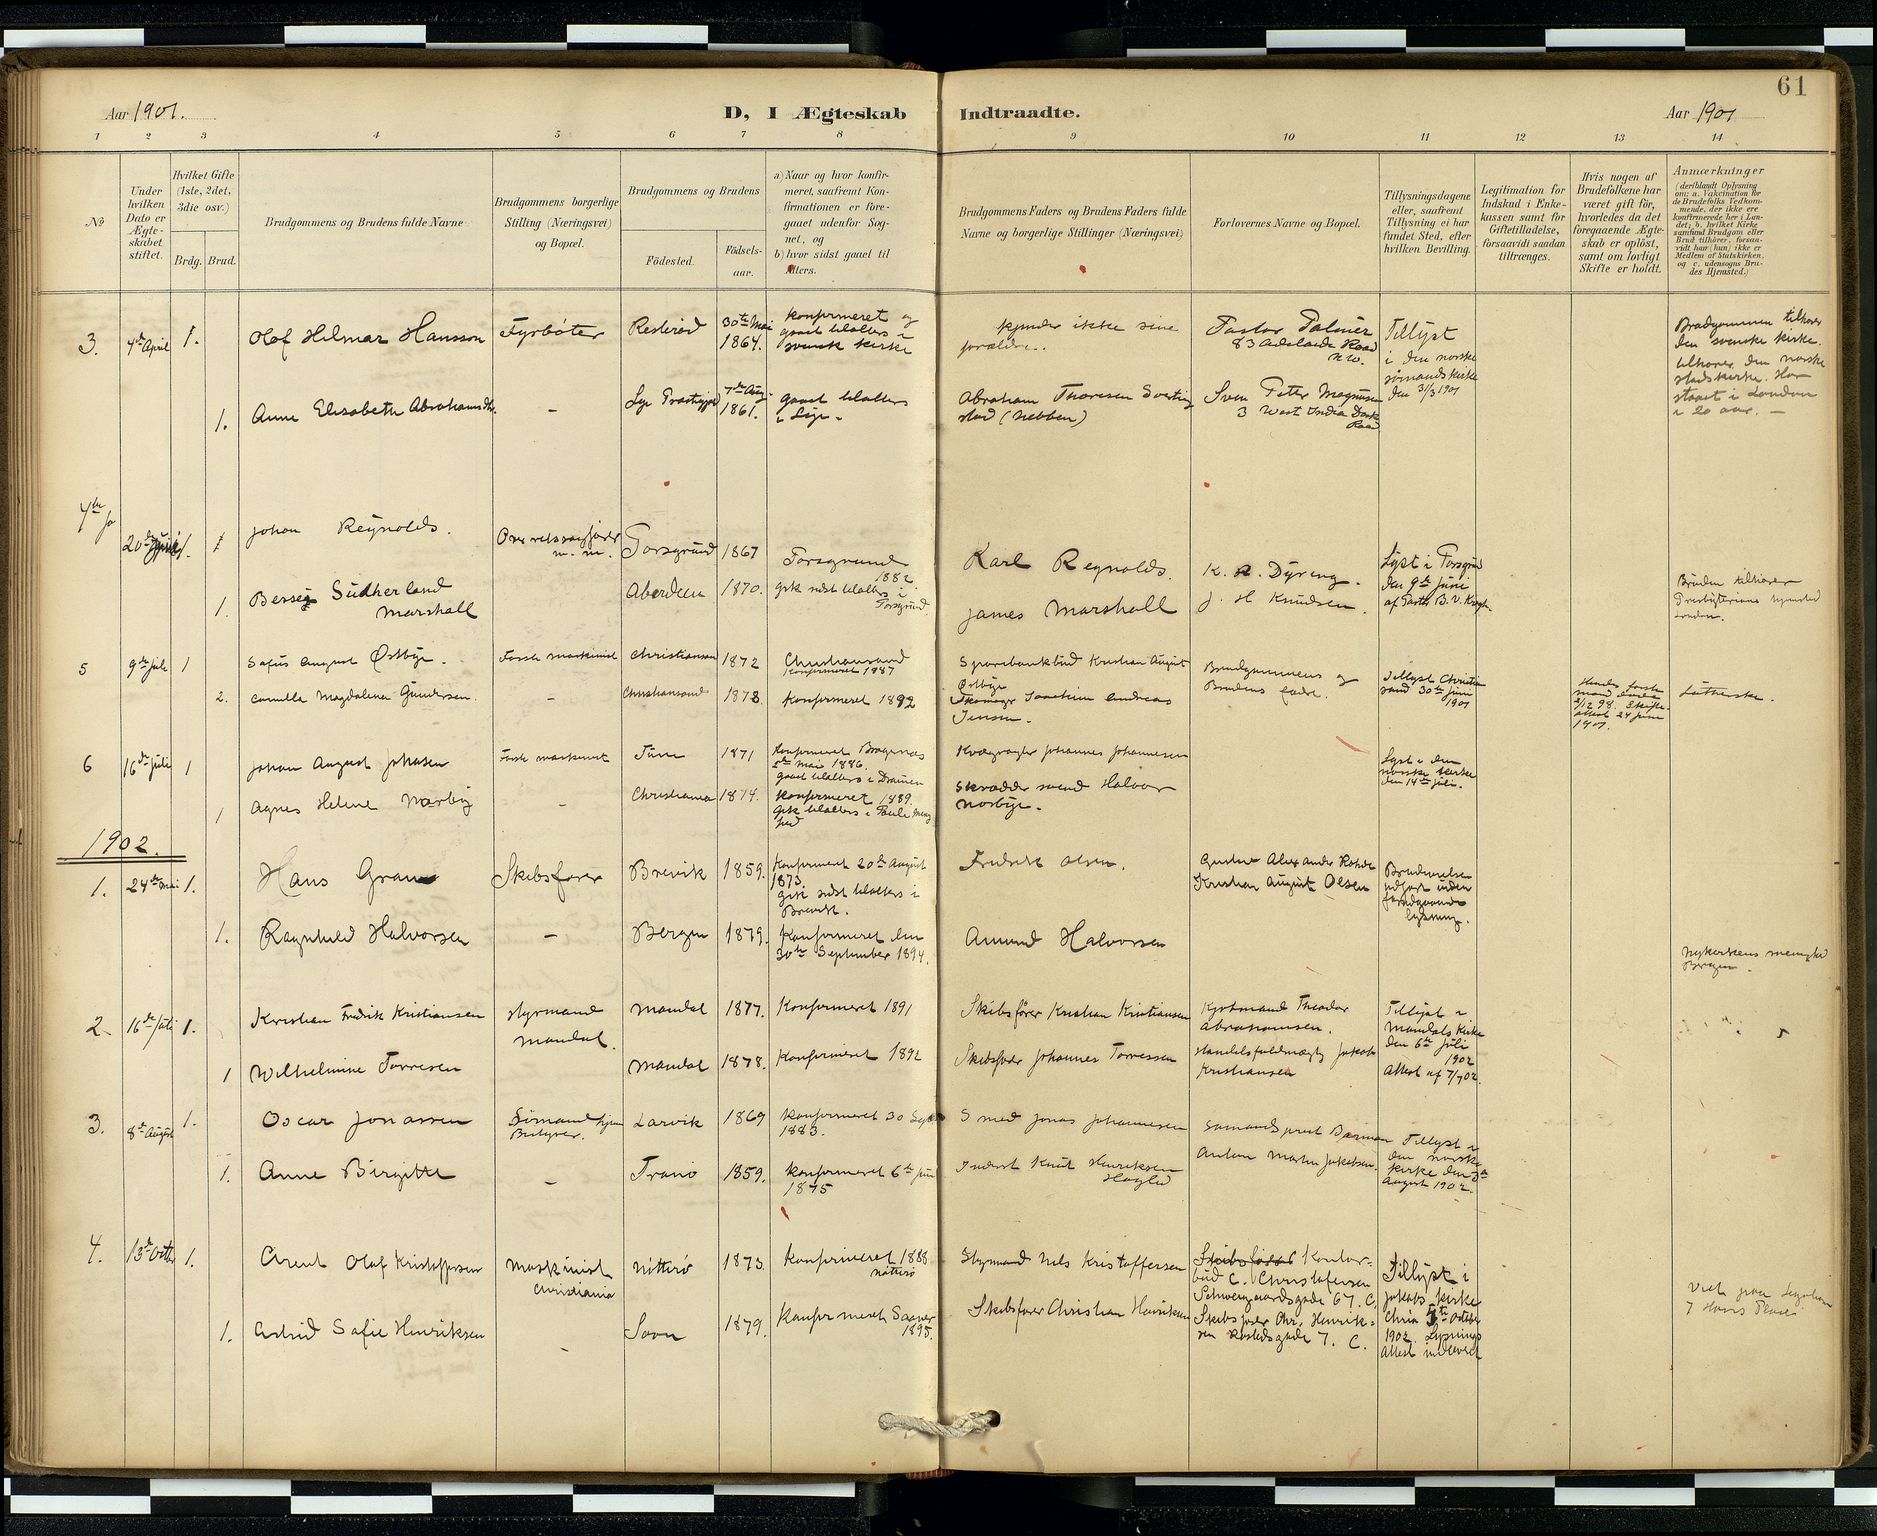 61
Aar 1901.
D, I Ægteskab Indtraadte.
Aar 1901
1 2 3 4 5 6 7 8 9 10 11 12 13 14
No
Under hvilken Dato er Ægteskabet stiftet.
Hvilket Gifte (1ste, 2det, 3die osv.)
Brdg. Brud.
Brudgommens og Brudens fulde Navne
Brudgommens borgerlige Stilling (Næringsvei) og Bopæl.
Brudgommens og Brudens
Fødested.
Fødselsaar.
a) Naar og hvor konfirmeret, saafremt Konfirmationen er foregaaet udenfor Sognet, og
b) hvor sidst gaaet til Alters.
Brudgommens Faders og Brudens Faders fulde Navne og borgerlige Stillinger (Næringsvei)
Forlovernes Navne og Bopæl.
Tillysningsdagene eller, saafremt Tillysning ei har fundet Sted, efter hvilken Bevilling.
Legitimation for Indskud i Enkekassen samt for Giftetilladelse, forsaavidt saadan tiltrænges.
Hvis nogen af Brudefolkene har været gift før, hvorledes da det foregaaende Ægteskab er opløst, samt om lovligt Skifte er holdt.
Anmærkninger (deriblandt Oplysning om: a. Vakcination for de Brudefolks Vedkommende, der ikke ere konfirmerede her i Landet; b. hvilket Kirkesamfund Brudgom eller Brud tilhører, forsaavidt han (hun) ikke er Medlem af Statskirken, og c. udensogns Brudes Hjemsted.)
3. 4de April 1. Olof Hilmar Hansson Fyrbøter 30te Mai 1864. konfirmeret og gaaet tilalters i svensk kirke
kjender ikke sine forældre.. Pastor Palmer 83 Adelaide Road N.W. Tillyst i den norske sjømandskirke den 31/3 1901
Brudgommen tilhører den svenske kirke.
1. Anne Elisabeth Abrahamsdtr. - 7de Aug. 1861. gaaet tilalters i Lye.
Abraham Thoresen (Nebben) Sven Peter Magnusen 3 West India Dock Road
tilhører den norske statskirke. Har i London i 20 aar. -
4de
20de Juni 1. Johan Reynolds. Overretssagfører m. m. Porsgrund 1867 Porsgrund 1882
Karl Reynolds. Lyst i Porsgrund den 9de Juni af
1. Bessey Sutherland Marshall Aberdeen 1870. gik sidst tilalters i Porsgrund.
James Marshall J. H. Knudsen. Bruden tilhører London.
5 9de Juli 1 Østbye. Første maskinist Christiansand 1872 Christiansand konfirmeret 1887
Sparebankbud Kristian August Østbye Brudgommens og Brudens fædre. Tillyst Christiansand 30te Juni 1901
2. Camilla Magdalena Gundersen. - Christiansand 1873 konfirmeret 1892
Joachim Andreas Jensen. Hendes første mand døde 98. Skifteattest 24 Juni 1901. Lutherske.
6 16de Juli 1 Johan August Johansen Første maskinist Tune 1871 konfirmeret Bragernes 2de Mai 1886. gaaet tilalters i Drammen
Johannes Johannesen Lyst i den norske kirke den 14de Juli.
1 Agnes Helene Nørby - Christiania 1874. konfirmeret 1889. gik tilalters i
Skrædder svend Halvor Norbye.
1902.
1. 24de Mai 1. Hans Gran Skibsfører Brevik 1859. konfirmeret 20de August 1873. gik sidst tilalters i Brevik.
Fredrik Olsen. Gustav Alexander Rohde Kristian August Olsen lysning.
1. Ragnhild Halvorsen - Bergen 1879. konfirmeret den 30te September 1894.
Amund Halvorsen Nykirkens menighed Bergen.
2. 16de Juli 1. Kristian Fredrik Kristiansen Styrmand Mandal. Mandal 1877. konfirmeret 1891
Skibsfører Kristian Kristiansen Theodor Abrahamsen. Tillyst i Mandals kirke den 6te Juli 1902 Attest af 7/7 02.
1 Wilhelmine Torresen Mandal 1878. konfirmeret 1892
Skibsfører Johannes Torressen Handelsfuldmægtig Jakob Kristiansen
3. 8de August 1. Oscar Jonassen Sømand Larvik 1869 konfirmeret 30 Sept 1883.
Smed Jonas Johannesen Sømandsprest Tillyst i den norske kirke den August 1902.
1. Anne Birgitte - Tranø 1859. konfirmeret 6te Juni 1875
Inderst Knut Henriksen Anton Martin Jakobsen.
4. 13de Octbr 1. Arent Olaf Kristoffersen Maskinist Christiania Nøtterø 1873. konfirmeret 1888 Nøtterø
Styrmand Nils Kristoffersen Kontorbud C. Christofersen Schweigaardsgade 67. C. Tillyst i Jakobs kirke Chria Octbr 1902. Lysnings attest indleveret
1. Astrid Sofie Henriksen - Soon 1879. konfirmeret Saaner 1895.
Skibsfører Christian Henriksen Skibsfører Chr. Henriksen 7. C.
Viet paa